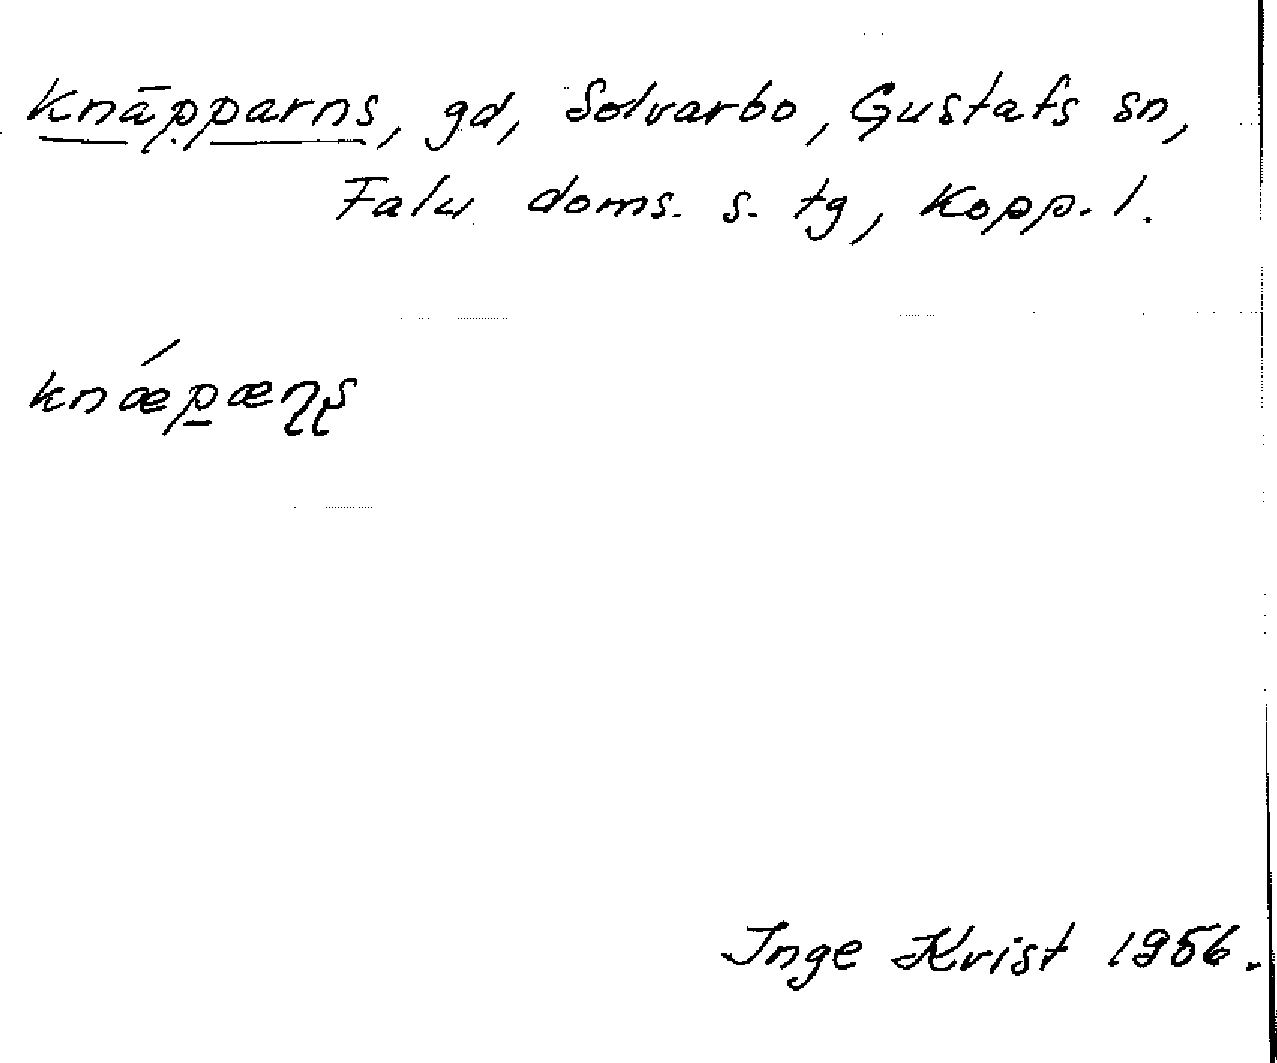 Knäpparns, gd, Solvarbo, Gustafs sn,
Falu doms. s. tg, Kopp. l.
knǽp̲æɳʂ
Inge Krist 1956.